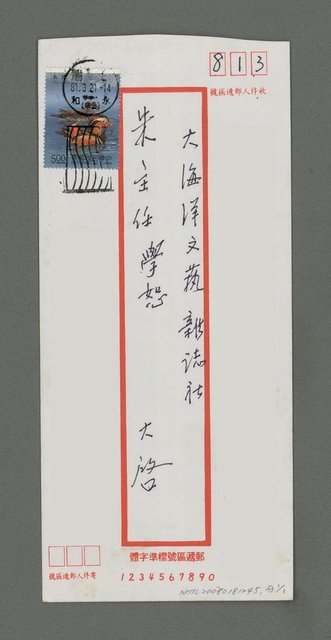 813
收件人郵遞區號
81.3.21.14
永和
500
大海洋文藝雜誌社
朱主任學恕
大啓
郵遞區號標準字體
寄件人郵遞區號
1 2 3 4 5 6 7 8 9 0